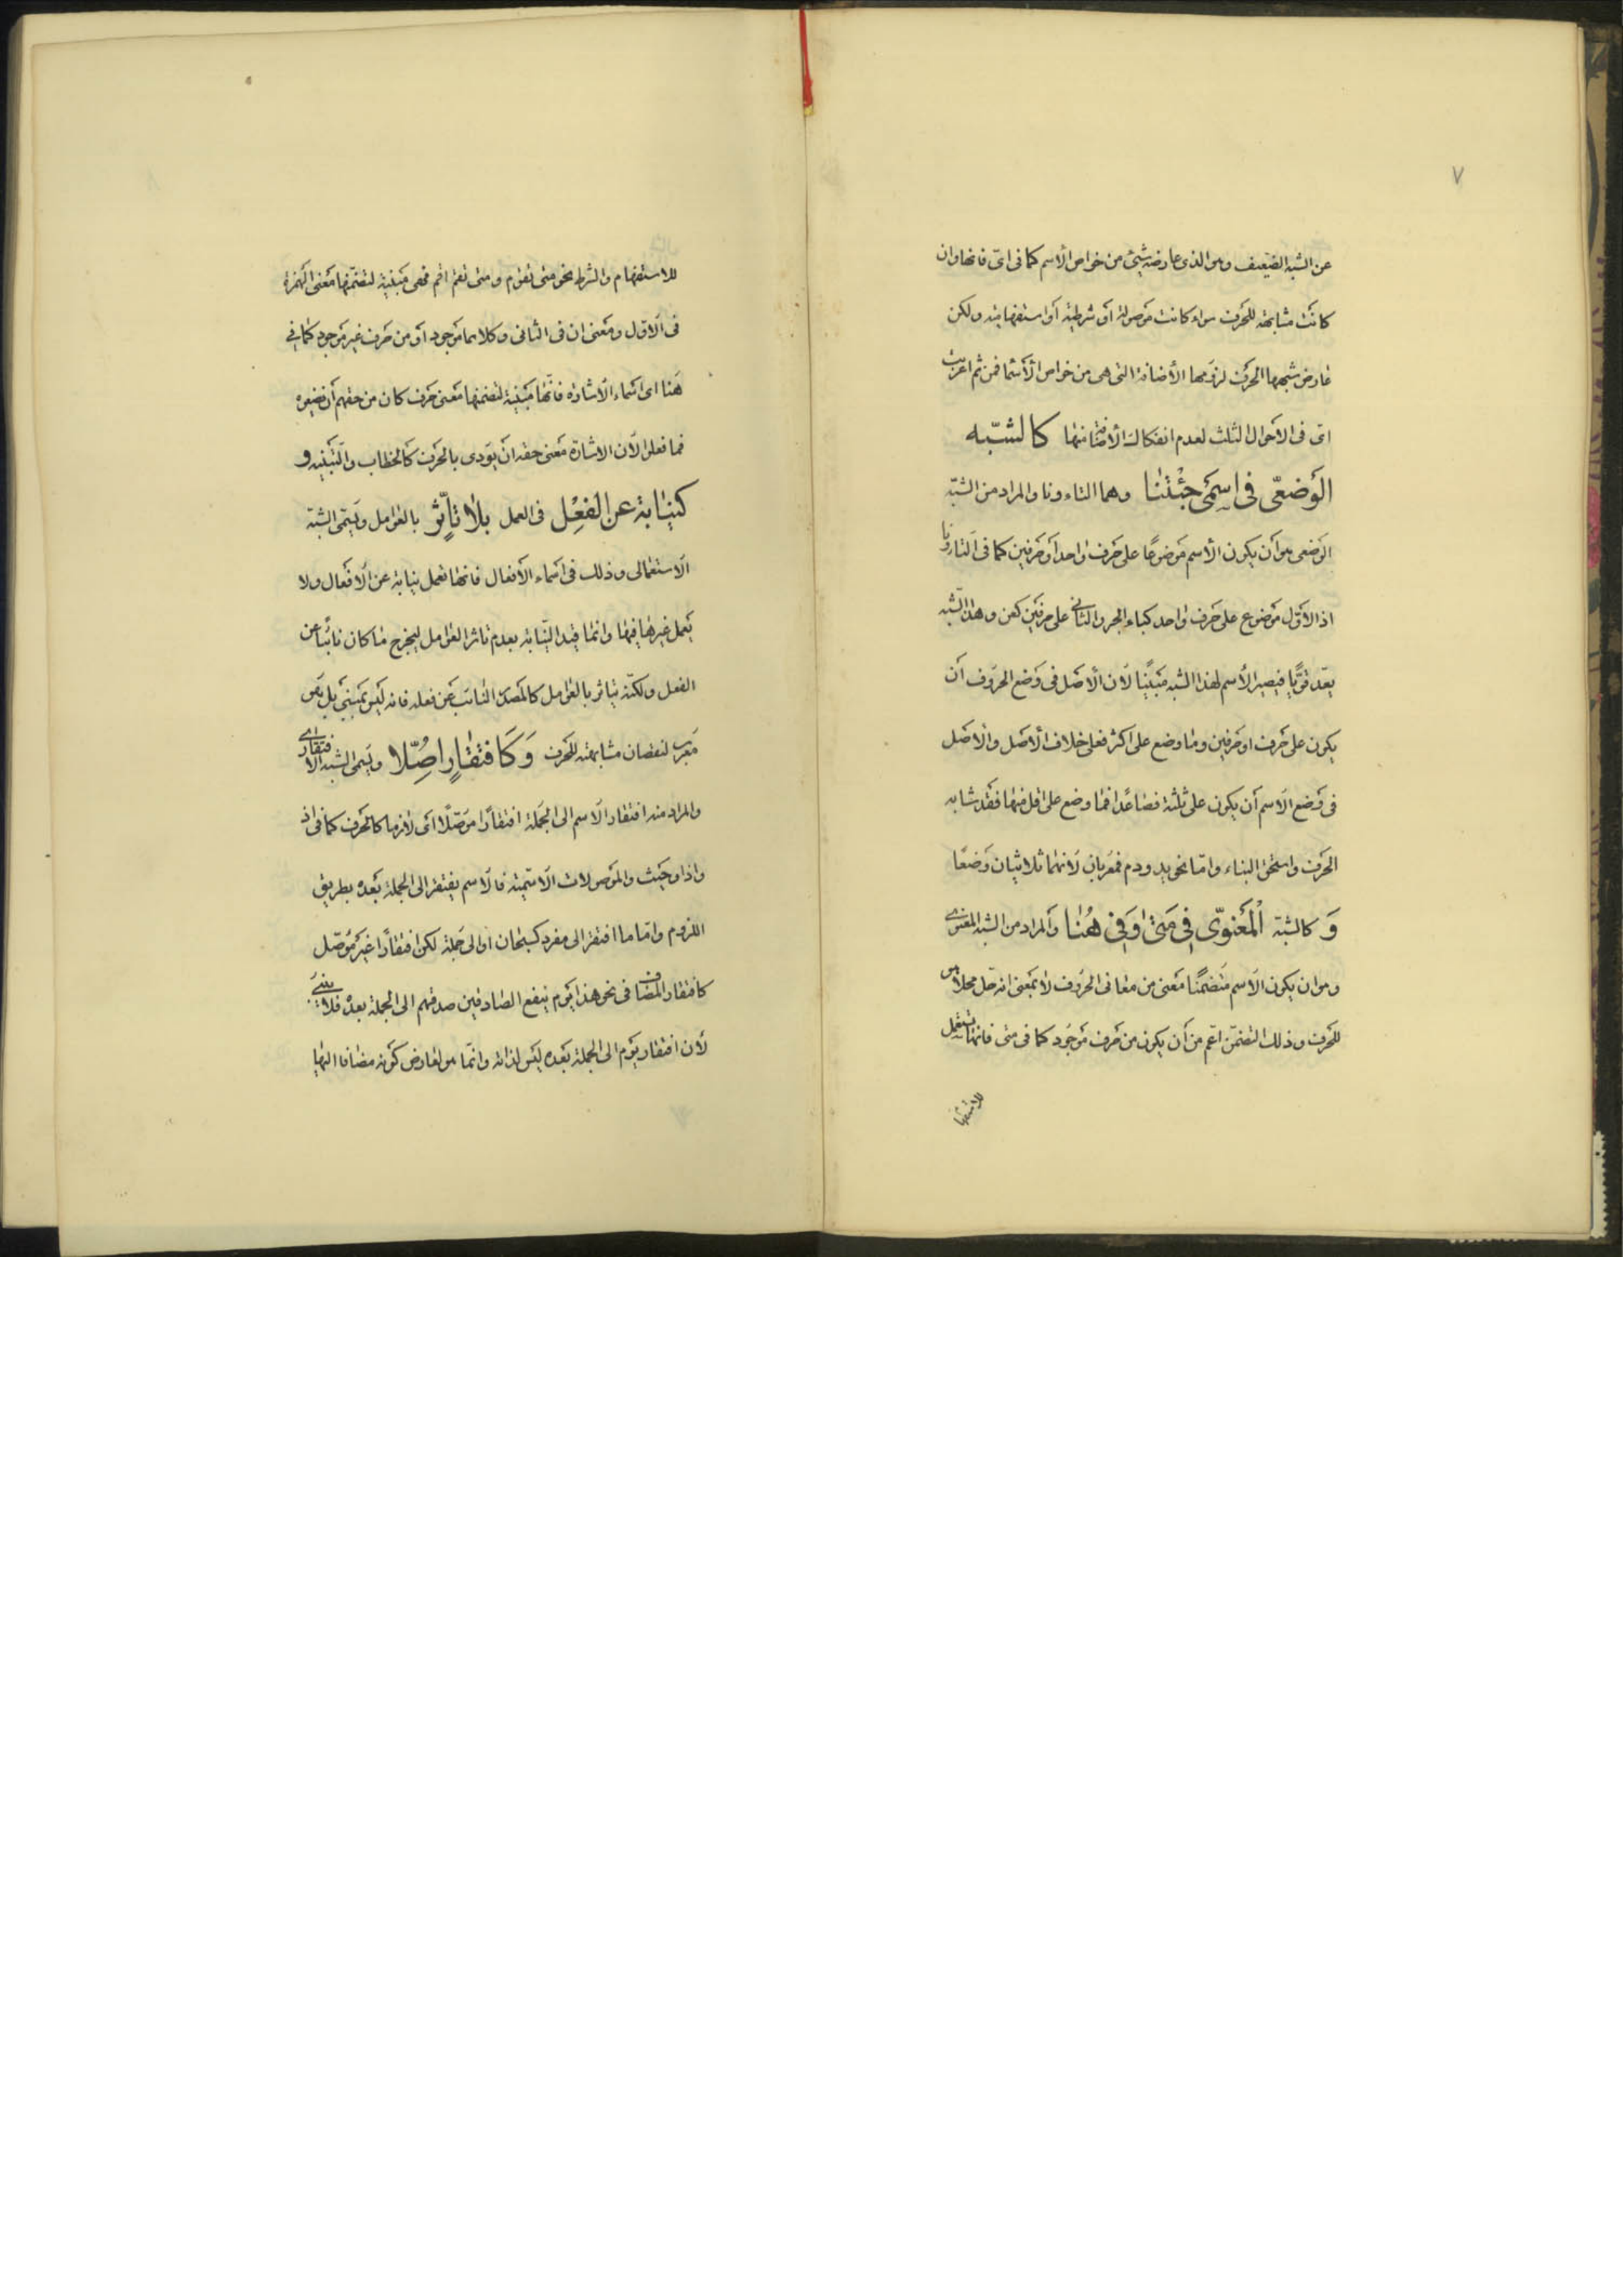 ٧
عن الشبه الضعيف وهو الذى عارضه شيئ من خواص الأسم كما فى اىّ فانها وان
كانت مشابهة للحرف سواء كانت موصولة أو شرطية أو استفهامية ولكن
عارض شبهها الحرف لزومها الأضافة التى هى من خواص الأسما فمن ثم اعربت
اىّ فى الاحوال الثلث لعدم انفكاك الأضافة عنها كالشّبه
الوَضعّى فى اسمَىْ جئْتَنا وهما التاء ونا والمراد من الشبّه
الوَضعى هو أن يكون الأسم موضوعًا على حَرف واحد أو حَرفين كما فى التا ونا
اذ الأوّل موضوع على حَرف واحد كباء الجر والثانى على حرفين كعن وهذا الشّبه
يعّد قويًّا فيصير الأسم لهذا الشبه مَبنيًا لأن الأصَل فى وَضع الحروف أن
يكون على حَرف او حَرفين وما وضع على اكثر فعلى خلاف الأصَل والأصَل
فى وَضع الأسم أن يكون على ثلثة فصاعدًا فما وضع على اقل منها فقد شابه
الحَرف واستحق البناء وامّا نحو يد ودم فمعربان لأنهما ثلاثيان وَضعًا
وَ كالشبّه الْمَعْنَوىّ فى مَتىٰ وَفى هُنٰا والمراد من الشبه المعنوى
وهو ان يكون الأسم متضمنًا معنى من معانى الحروف لا بمعنى انه حَل محلا هو
للحَرف وذلك التضمّن اعّم من أن يكون من حَرف مَوجَود كما فى متى فانها تستعمل
للاستفها
للاستفهام والشرط نحو متى تقوم ومتى تقم اقم فهى مَبنية لتضمّنها مَعنى الهمزة
فى الأوّل ومَعنى ان فى الثانى وكلاهما مَوجود أو من حَرف غير مَوجود كما فى
هَنا اى اسماء الأشارة فانّها مَبنية لتضمنها مَعنى حَرف كان من حقهم أن يضعوه
فما فعلوا لأن الاشارة مَعنى حقه انّ يؤدى بالحَرف كالخطاب والتّنبيه و
كنيٰابة عن الفعْل فى العمل بلا تأثّرٍ بالعَوامل ويَسمّى الشبّه
الأستعمالى وذلك فى اسَماء الأفعال فانها تعمل نيابة عن الأفعال ولا
يَعمل غيرها فيها وانما قيد النّيابة بعدم تاثر العَوامل ليخرج ما كان نائبًا عن
الفعل ولكنّه يتاثر بالعَوامل كالمَصدر النائب عَن فعله فانه ليس بمَبنىّ بل هَو
مَعرب لنقصان مشابهته للحَرف وَكَافتقٰارٍ اصِّلا ويَسمى الشبه الأفتقارى
والمراد منه افتقار الأسم الى الجملة افتقارًا مؤصّلًا اى لازما كالحَرف كما فى اذ
واذا وحَيث والمَوصولات الأسمية فالأسم يفتقر الى الجملة بَعده بطريق
اللزوم وامّا ما افتقر الى مفرد كسبحان او الى جَملة لكن افتقارًا غير مُؤصّل
كافتقار المضاف فى نحو هذا يَوم ينفع الصادقين صدقهم الى الجملة بعده فلا يُبنى
لأن افتقار يَوم الى الجملة بَعده ليَس لذاته وانّما هو لعارض كَونه مضافا اليها